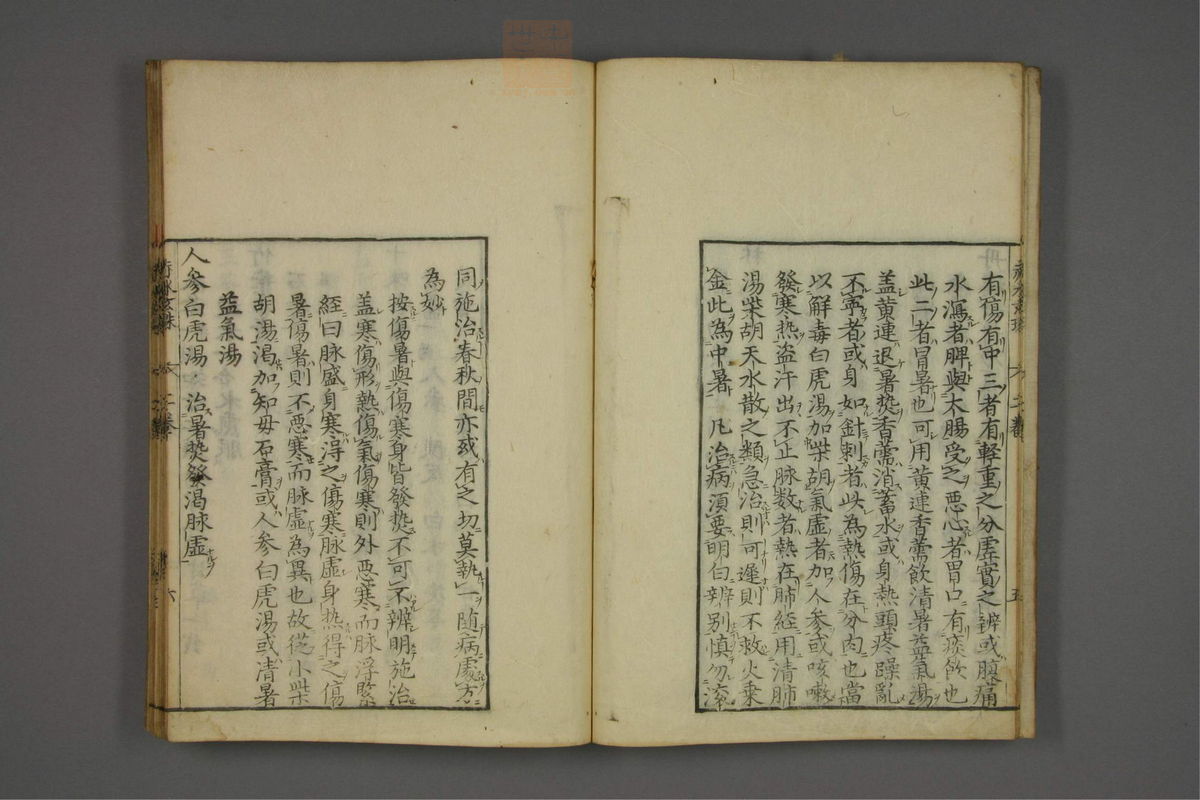 有傷有中三者有輕重之分虛實之辨或腹痛
水瀉者脾與大腸受之惡心者胃口有痰飲也
此二者冒暑也可用黃連香薷飲清暑益氣湯
盖黃連退暑熱香薷消蓄水或身熱頭疼躁亂
不寧者或身如針刺者此為熱傷在分肉也當
以解毒白虎湯加柴胡氣虛者加人參或咳嗽
發寒热盗汗出不止脉数者熱在肺經用清肺
湯柴胡天水散之類急治則可遲則不救火乗
金此為中暑 凡治病湏要明白辨別慎勿滚
同施治春秋間亦或有之切莫執一随病處方
為妙
按傷暑與傷寒身皆發热不可不辨明施治
盖寒傷形熱傷氣傷寒則外惡寒而脉浮緊
經曰脉盛身寒淂之傷寒脉虛身热得之傷
暑傷暑則不惡寒而脉虛為異也故從小柴
胡湯渴加知毋石膏或人參白虎湯或清暑
益氣湯
人參白虎湯 治暑熱發渴脉虛